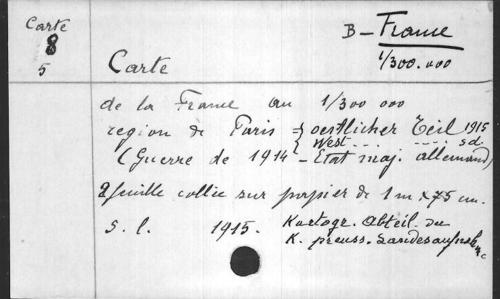 Carte
8
5
B - France
1/300.000
Carte
de la France au 1/300 000
region de Paris { oestlicher Teil 1915
{ West ... ... s d.
(Guerre de 1914 - Etat maj. allemand)
2 feuille collée sur papier de 1 m x 75 cm.
S. l. 1915. Kartogr. Abteil. du
K. preuss. Landesaufnahme